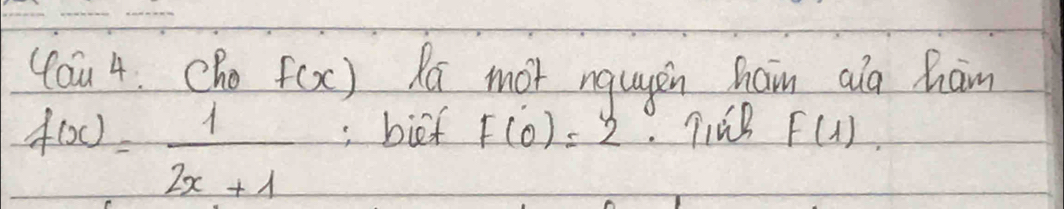 Câu 4. Cho F(x) là một nguyên hàm của hàm
f(x) = 1 / 2x + 1 ; biết F(0) = 2. Tính F(1).